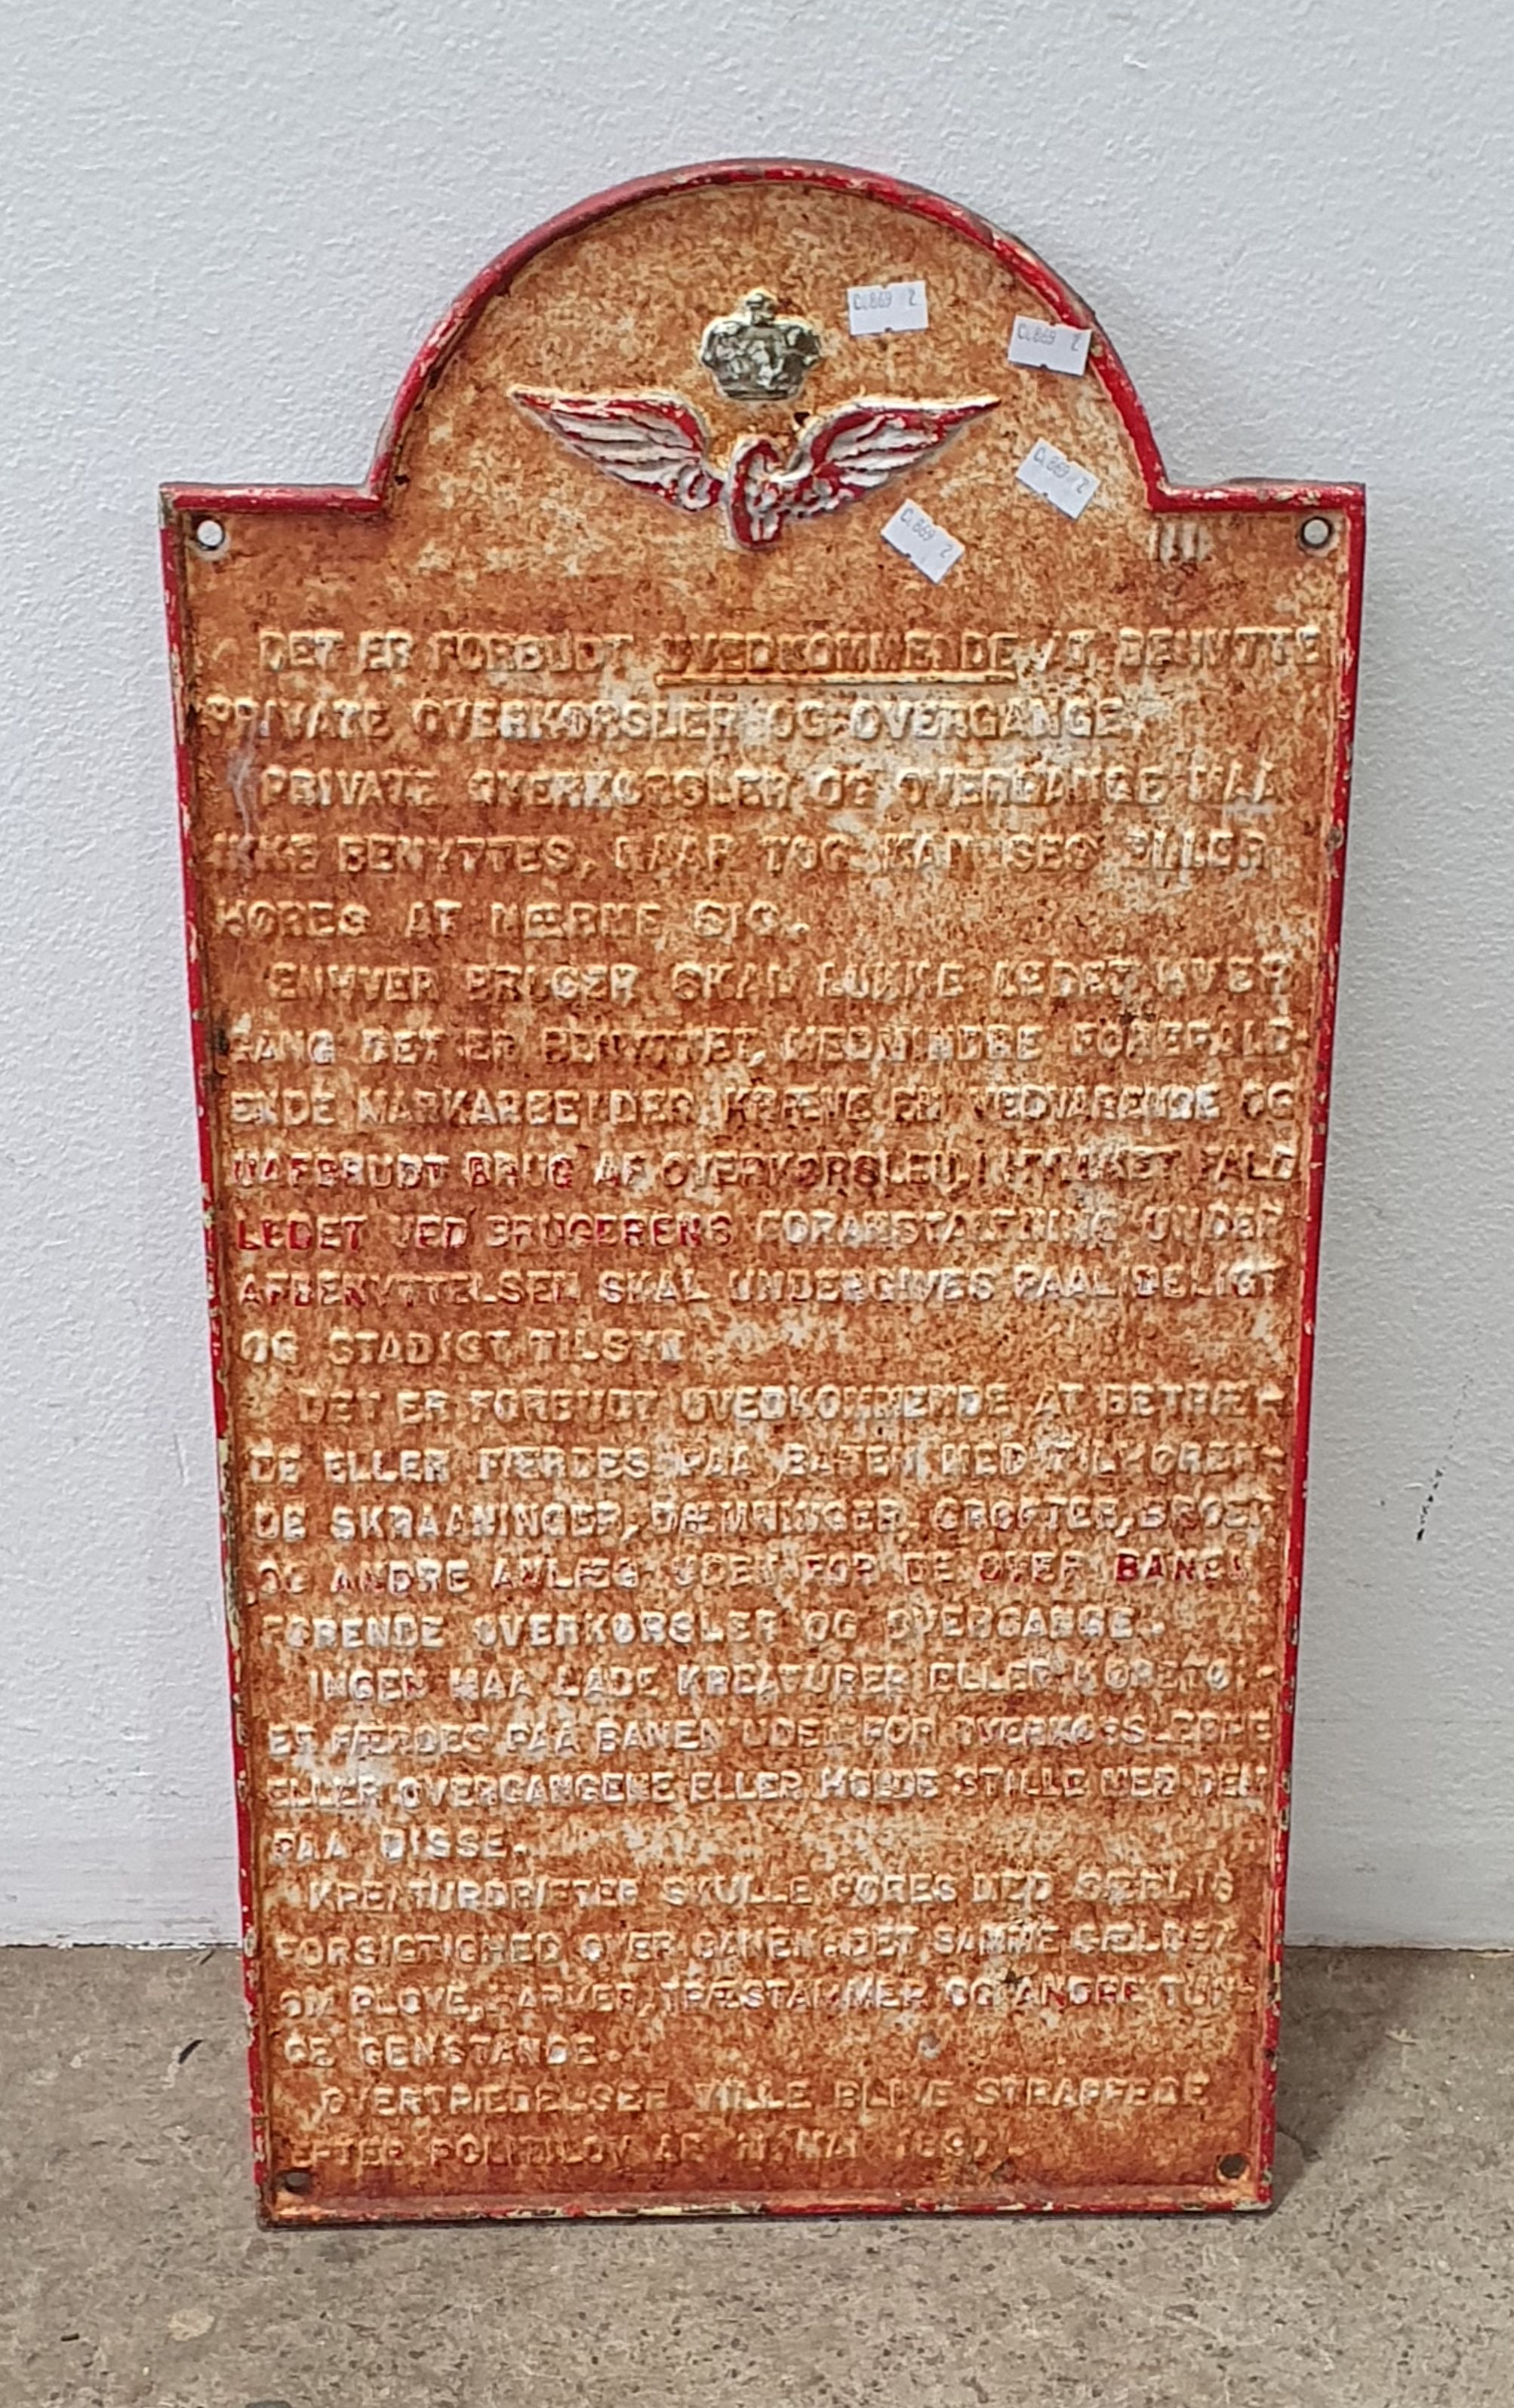 CL869 2
CL869 2
CL869 2
CL869 2
DET ER FORBUDT UVEDKOMMENDE AT BENYTTE
PRIVATE OVERKØRSLER OG OVERGANGE.
PRIVATE OVERKØRSLER OG OVERGANGE MAA
IKKE BENYTTES, NAAR TOG KAN SES ELLER
HØRES AT NÆRME SIG.
ENHVER BRUGER SKAL LUKKE LEDET HVER
GANG DET ER BENYTTET, MEDMINDRE FOREFALD-
ENDE MARKARBEJDER KRÆVE EN VEDVARENDE OG
UAFBRUDT BRUG AF OVERKØRSLEN, I HVILKET FALD
LEDET VED BRUGERENS FORANSTALTNING UNDER
AFBENYTTELSEN SKAL UNDERGIVES PAALIDELIGT
OG STADIGT TILSYN.
DET ER FORBUDT UVEDKOMMENDE AT BETRÆ-
DE ELLER FÆRDES PAA BANEN MED TILHØREN-
DE SKRAANINGER, DÆMNINGER, GRØFTER, BROER
OG ANDRE ANLÆG UDEN FOR DE OVER BANEN
FØRENDE OVERKØRSLER OG OVERGANGE.
INGEN MAA LADE KREATURER ELLER KØRETØJ-
ER FÆRDES PAA BANEN UDEN FOR OVERKØRSLERNE
ELLER OVERGANGENE ELLER HOLDE STILLE MED DEM
PAA DISSE.
KREATURDRIFTER SKULLE FØRES MED SÆRLIG
FORSIGTIGHED OVER BANEN. DET SAMME GÆLDER
OM PLOVE, HARVER, TRÆSTAMMER OG ANDRE TUN-
GE GENSTANDE.
OVERTRÆDELSER VILLE BLIVE STRAFFEDE
EFTER POLITILOV AF 11. MAJ